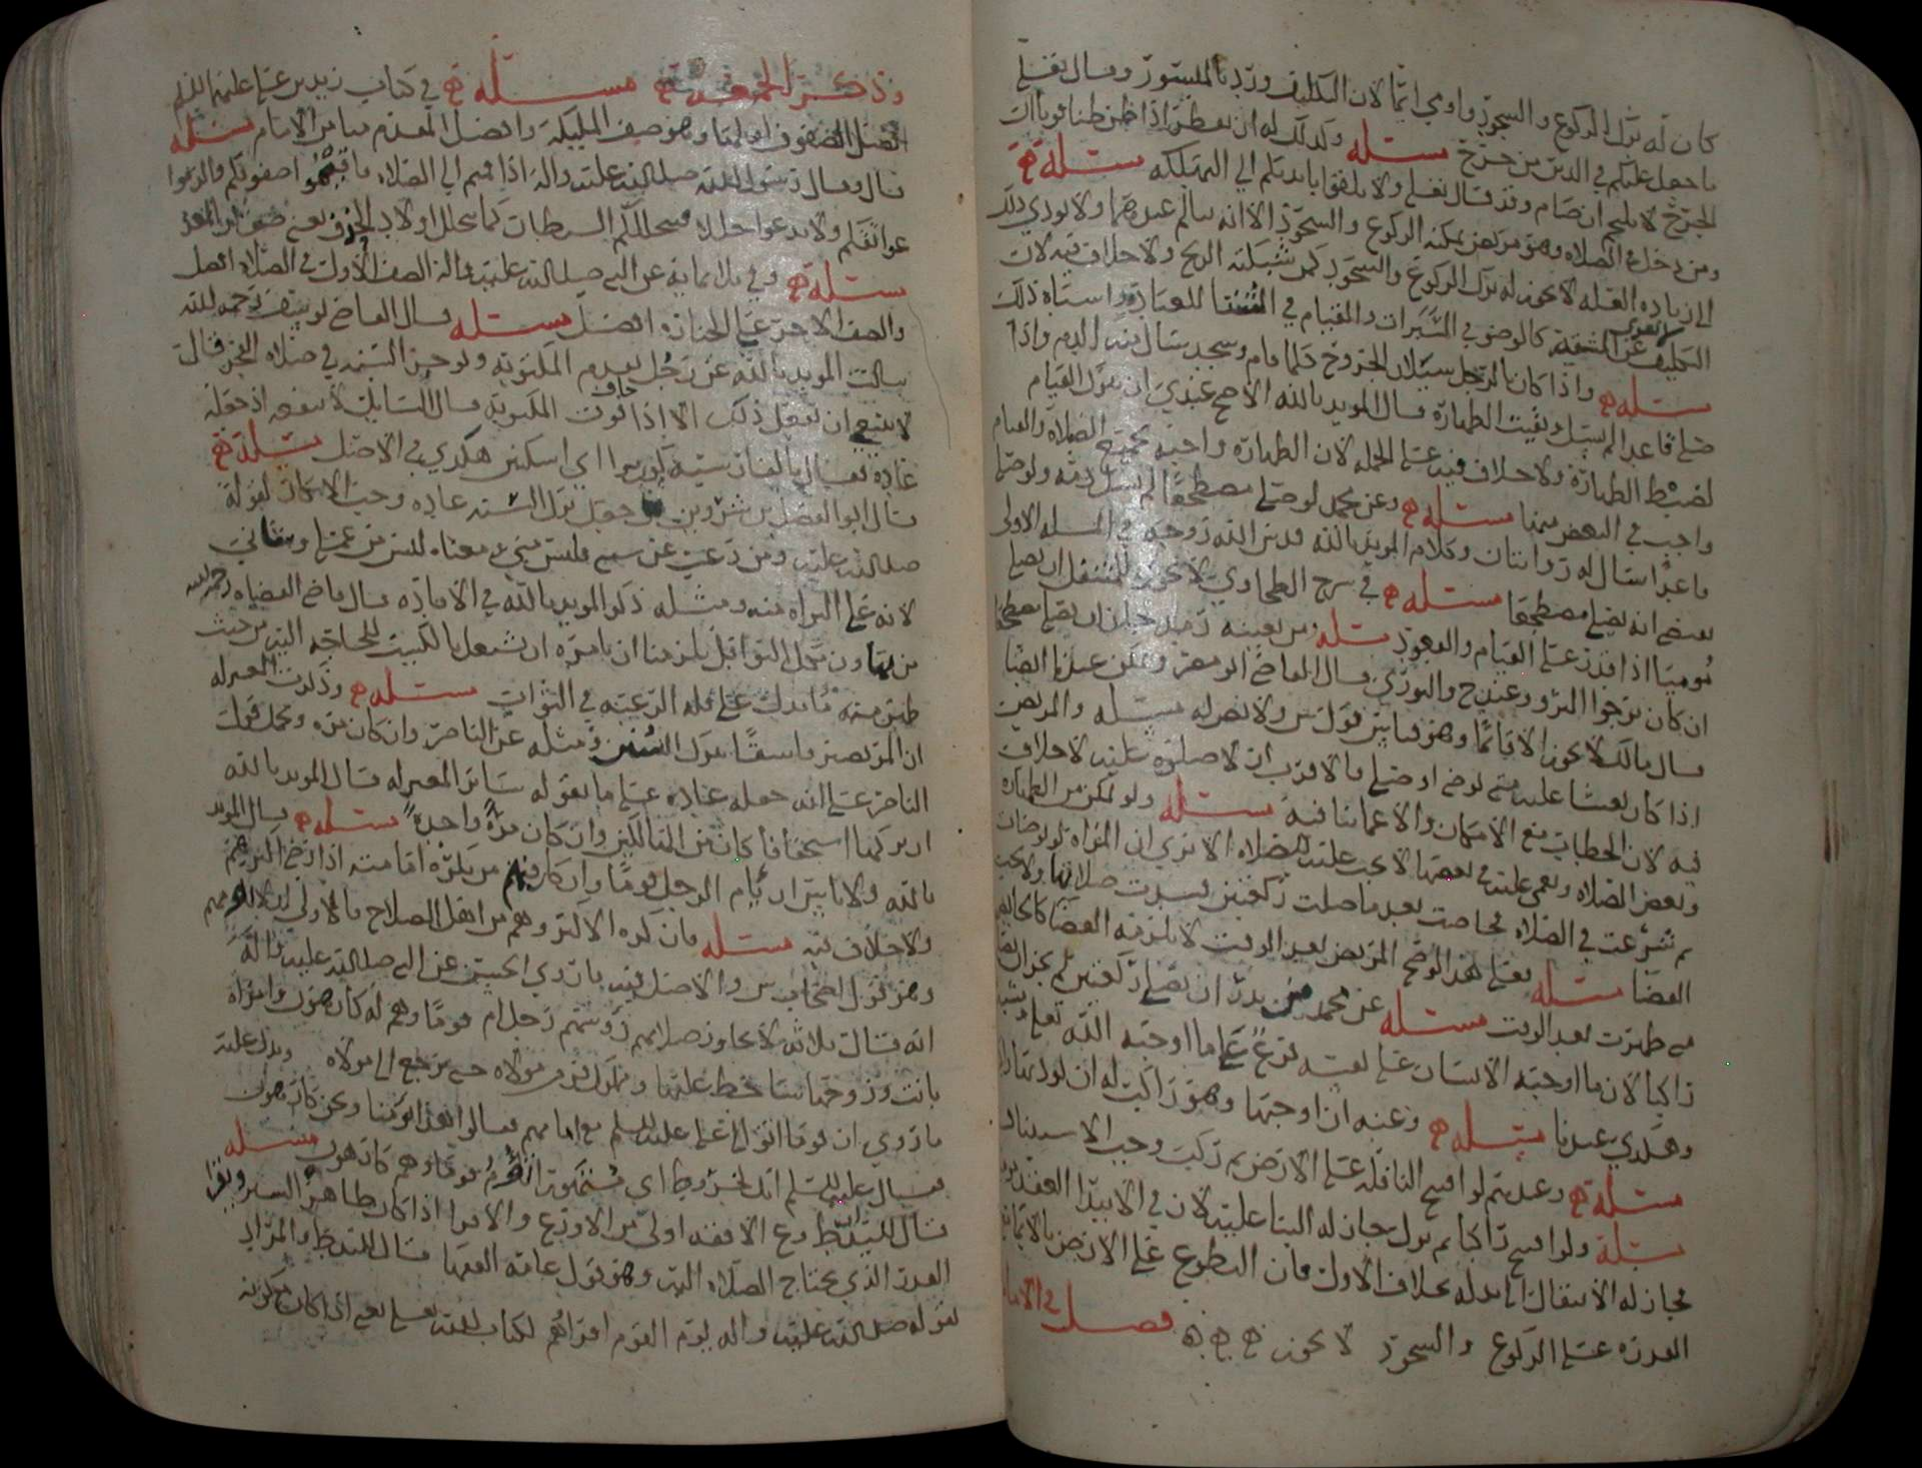 كان له ترك الركوع والسجود واومي ايما لان التكليف ورد بالميسور وقال تعلى
ما جعل عليكم في الدين من حرج مسئله وكذلك له ان يفطر اذا ظن ظنا قويا ان
الجرح لا يلتحم ان صام وقد قال تعلى ولا تلقوا بايديكم الى التهلكة مسئلة
ومن دخل في الصلاه وهو مريض يمكنه الركوع والسجود الا انه يتالم عندهما ولا يودي ذلك
الى زياده العله لا يجوز له ترك الركوع والسجود كمن شبكته الريح ولا خلاف فيه لان
التكليف لا يعرى عن المشقة كالوضوء في السبرات والقيام في الشتا للعبادة واشباه ذلك
مسئله واذا كان بالرجل سيلان الجروح كلما قام وسجد سال منه الدم واذا
صلى قاعدا لم يسل وبقيت الطهارة قال المويد بالله الاصح عندي ان يترك القيام
لضبط الطهارة ولا خلاف فيه على الجملة لان الطهارة واجبه لجميع الصلاه والقيام
واجب في البعض منها مسئله وعن محمد لو صلى مضطجعا لم يسل دمه ولو صلى
قاعدا سال له روايتان وكلام المويد بالله قدس الله روحه في المسله الاولى
يقتضي انه يصلي مضطجعا مسئله في شرح الطحاوي لا يجوز للمتنفل ان يصلي
مُوميا اذا قدر على القيام والقعود مسئله ومن بعينه رمد جاز ان يصلي مضطجعا
ان كان يرجوا البرو وعند ح والثوري قال القاضي ابو مضر وعلى هذا ايضا
قال مالك لا يجوز الا قائما وهو قياس قول ش ولا نص له مسئله والمريض
اذا كان يغشا عليه متى توضى او صلى فالاقرب ان لا صلوه عليه لا خلاف
فيه لان الخطاب مع الامكان والاغما ينافيه مسئله ولو تمكن من الطهاره
وبعض الصلاه ويغمى عليه في بعضها لا يجب عليه الصلاه الا ترى ان المراه لو توضات
ثم شرعت في الصلاه فحاضت بعد ما صلت ركعتين فسدت صلاتها ولا يجب
القضا مسئله فعلى هذا لو صح المريض بعد الوقت لا يلزمه القضا كالحايض
متى طهرت بعد الوقت مسئله عن محمد من نذر ان يصلي ركعتين لم يجز ان يصلي
راكبا لان ما اوجبه الانسان على نفسه فرع على ما اوجبه الله تعلى
وهكذي عندنا مسئله وعنه ان اوجبها وهو راكب له ان يوديها
مسئلة وعندهم لو افتتح النافله على الارض ثم ركب وجب الاستيناف
مسئلة ولو افتتح راكبا ثم نزل جاز له البنا عليه لان في الابتدا
فجاز له الانتقال الى بدله بخلاف الاول فان التطوع على الارض بالايما
القدره على الركوع والسجود لا يجوز فصل في الامامة
وذكر الجمعه مسئله في كتاب زيد بن علي عليهما السلم
افضل الصفوف اولها وهو صف المليكه وافضل المقدم ميامن الامام مسئله
قال وقال رسول الله صلى الله عليه واله اذا قمتم الى الصلاه فاقيموا صفوفكم والزموا
عواتقكم ولا تدعوا خللا فيتخللكم الشيطان كما يتخلل اولاد الحذف يعني صغار المعز
مسئله وفي ثلاثمايه عن النبي صلى الله عليه واله الصف الاول في الصلاه افضل
والصف الاخر على الجنازه افضل مسئله قال القاضي يوسف رحمه الله
سالت المويد بالله عن رجل يقدم المكتوبه ويوخر السنه في صلاه الفجر قال
لا ينبغي ان يفعل ذلك الا اذا خاف فوت المكتوبه قال السايل لا ينفعه اذ جعله
عاده فقال بالفارسية اي اسكين هكذي في الاصل مسئلة
قال ابو الفضل بن شروين من جعل ترك السنه عاده وجب الانكار لقوله
صلى الله عليه ومن رغب عن سنتي فليس مني معناه ليس من عملي وشاني
لانه على البراه منه ومثله ذكر المويد بالله في الافاده قال قاضي القضاه رحمه الله
من تهاون بحمل النوافل يلزمنا ان نامره ان يشتغل بالكسب للحاجه اليه من حيث
ظهر منه ما يدل على قله الرغبه في الثواب مسئله وذكرت المعتزله
ان المرء يصير فاسقا بترك السنن ومثله عن الناصر وان كان مره ويحمل قول
الناصر على انه جعله عاده على ما يقوله ساير المعتزله قال المويد بالله
ان تركها استخفافا كان من الهالكين وان كان مرةً واحدةً مسئله قال المويد
بالله ولا باس ان يؤم الرجل قومًا وان كان فيهم من يكره امامته اذا رضي اكثرهم
ولا خلاف فيه مسئله فان كره الاكثر وهم من اهل الصلاح فالاولى ان لا يؤمهم
وهو قول اصحاب ش والاصل فيه ما روى الحسن عن النبي صلى الله عليه واله
انه قال ثلاثه لا تجاوز صلاتهم رؤسهم رجل ام قومًا وهم له كارهون وامراه
باتت وزوجها ساخط عليها ومملوك فر من مولاه حتى يرجع الى مولاه ويدل عليه
ما روي ان قوما اتوا الى علي عليه السلم مع امامهم فقالوا هذا يؤمنا ونحن كارهون
فقال عليه السلم انك لخروط اي متهور اتؤم قوما وهم كارهون مسئله
قال السيد ط وع الافقه اولى من الاورع والاقرا اذا كان طاهر الستر ويقرا
القدر الذي يحتاج الصلاه اليه وهو قول عامه الفقها قال السيد ط والمراد
بقوله صلى الله عليه واله يؤم القوم اقراهم لكتاب الله تعلى يعني اذا كان مع كونه